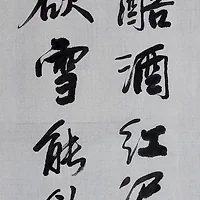 醅酒红泥
欲雪能